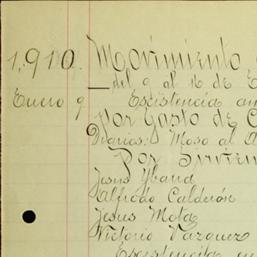 1,910. Movimiento
del 9 al 16 de E
Enero 9 Escistencia an
Por Gasto de C
Diarias: Moso al A
Por Sirvien
Jesus Ybarra
Alfredo Calderón
Jesus Mota
Victorio Vazquez
Escistencia en